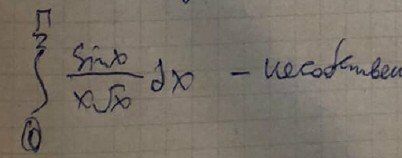 ∫_0^{π/2} sinx / x√x dx – несобствен